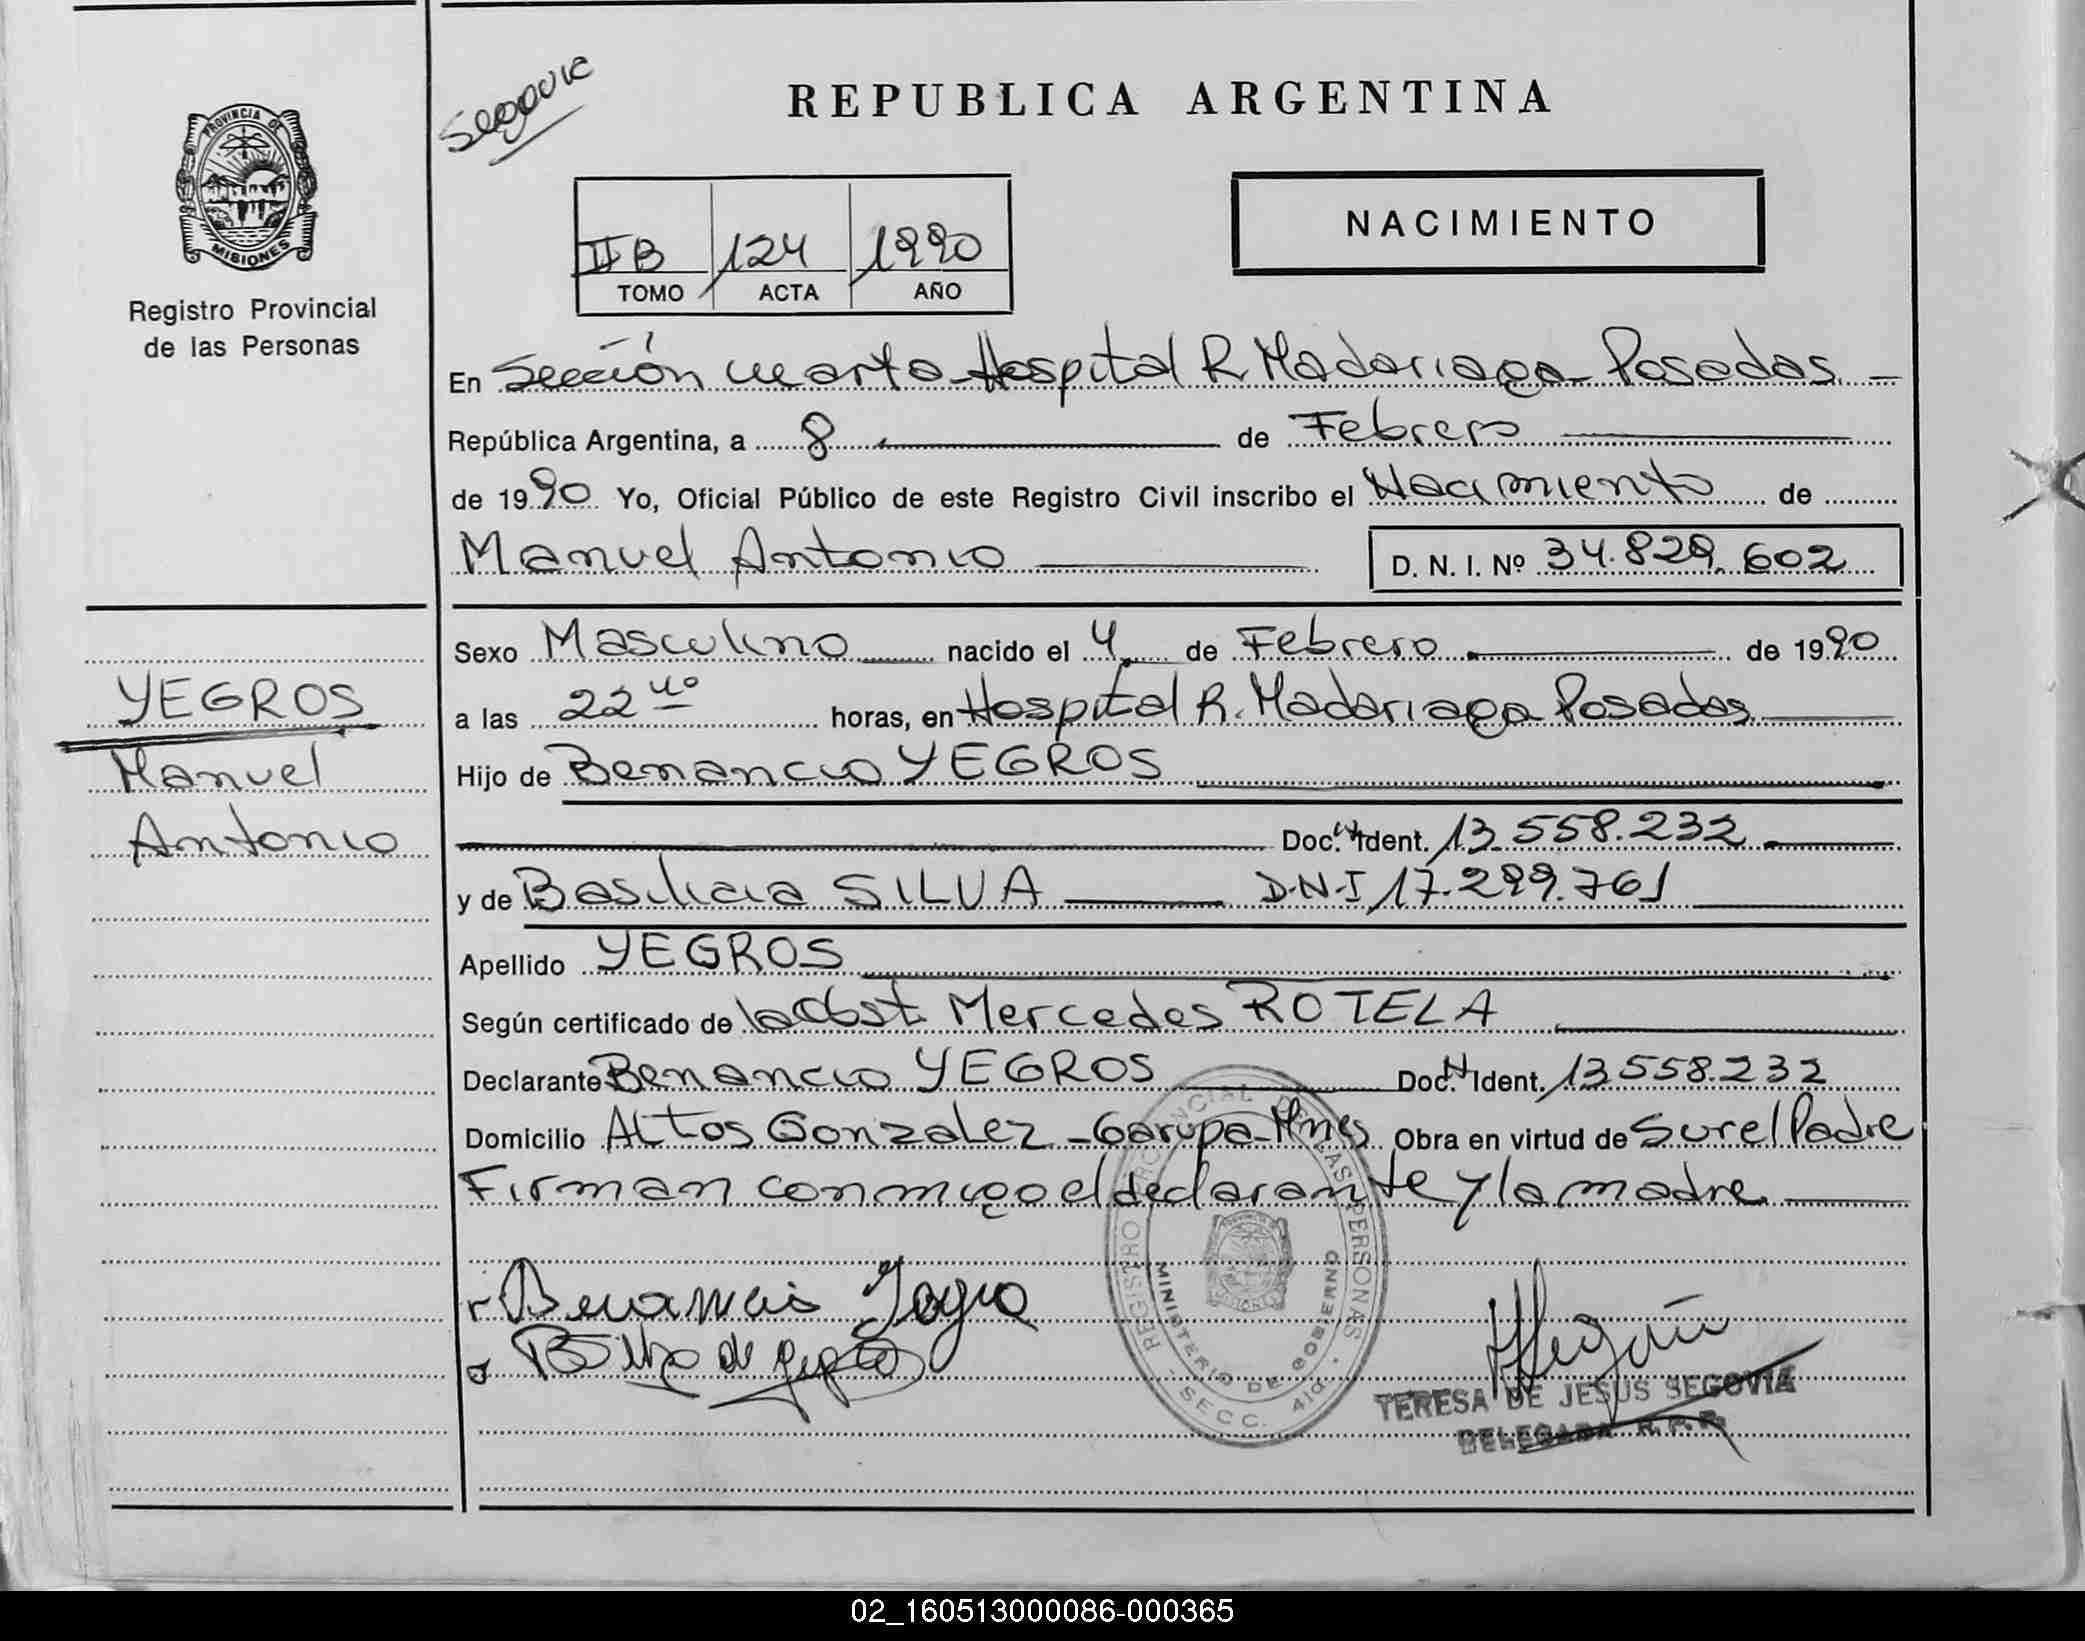 Segovia
REPUBLICA ARGENTINA
PROVINCIA DE MISIONES
Registro Provincial
de las Personas
II B 124 1990
TOMO ACTA AÑO
NACIMIENTO
En Sección cuarta Hospital R Madariaga Posadas
República Argentina, a 8 de Febrero
de 1990 Yo, Oficial Público de este Registro Civil inscribo el Nacimiento de
Manuel Antonio D. N. I. Nº 34.829.602
Sexo Masculino nacido el 4 de Febrero de 1990
YEGROS
a las 22 40 horas, en Hospital R. Madariaga Posadas
Manuel
Hijo de Benancio YEGROS
Antonio
Doc. Ident. 13.558.232
y de Basilicia SILVA D.N.I 17.299.761
Apellido YEGROS
Según certificado de la Obst. Mercedes ROTELA
Declarante Benancio YEGROS Doc. Ident. 13558.232
Domicilio Altos Gonzalez - Garupa - Mnes Obra en virtud de Ser el Padre
Firman conmigo el declarante y la madre
REGISTRO PROVINCIAL DE LAS PERSONAS
MINISTERIO DE GOBIERNO
SECC. 4ta.
TERESA DE JESUS SEGOVIA
DELEGADA R.P.P.
02_160513000086-000365